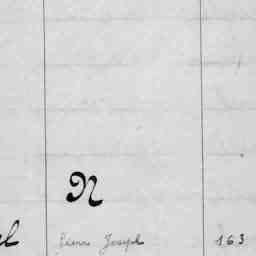 N
Pierre Joseph 163